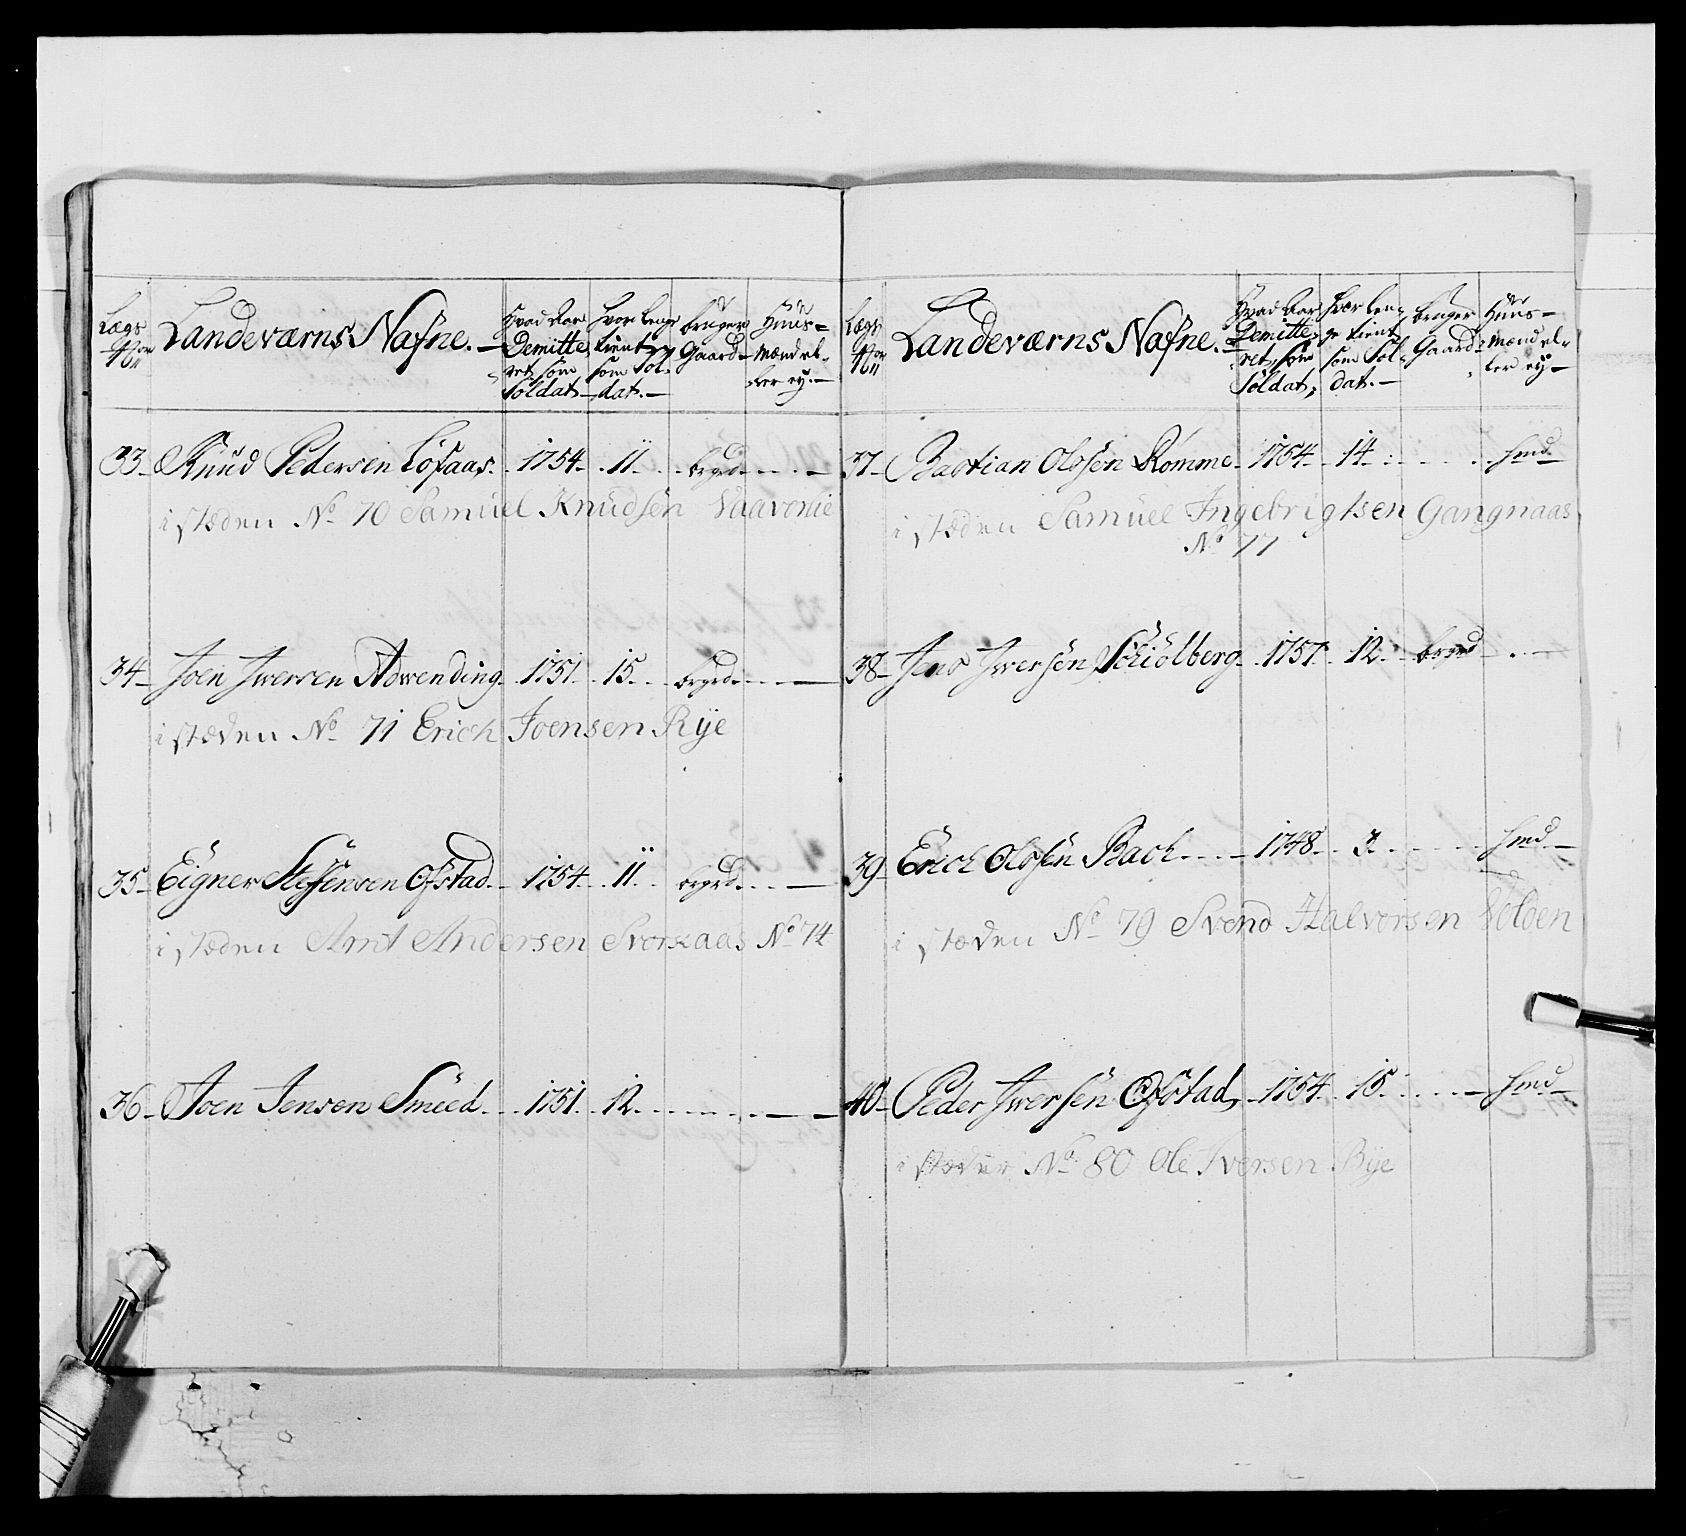 Lægs No
Landeværns Nafne. Hvad Aar Demitteret som Soldat Hvor lenge tient som Soldat. bruger Gaard Huusmænd eller ey.
33 Knud Pedersen Løfaas 1754 11 brgrd
i stæden No 70 Samuel Knudsen Vaavelie
34 Joen Iwersen Adwending 1751 15 brgrd
i stæden No 71 Erich Joensen Rye
35 Eigner Steffensen Ofstad 1754 11 brgrd
i stæden Arnt Andersen Svorkaas No 74
36 Joen Jensen Smeed 1751 12
Lægs No
Landeværns Nafne. Hvad Aar Demitteret som Soldat Hvor lenge tient som Soldat. bruger Gaard Huusmænd eller ey
37 Bastian Olssen Romme 1764 14 hmd
i stæden Samuel Ingebrigtsen Gangnaas
No 77
38 Jens Iwersen Schiølberg 1757 12 brgrd
39 Erich Olssen Bach 1748 3 hmd
i stæden No 79 Svend Halvorsen Volden
40 Peder Iwersen Ofstad 1754 15 hmd
i stæden No 80 Ole Iversen Rye